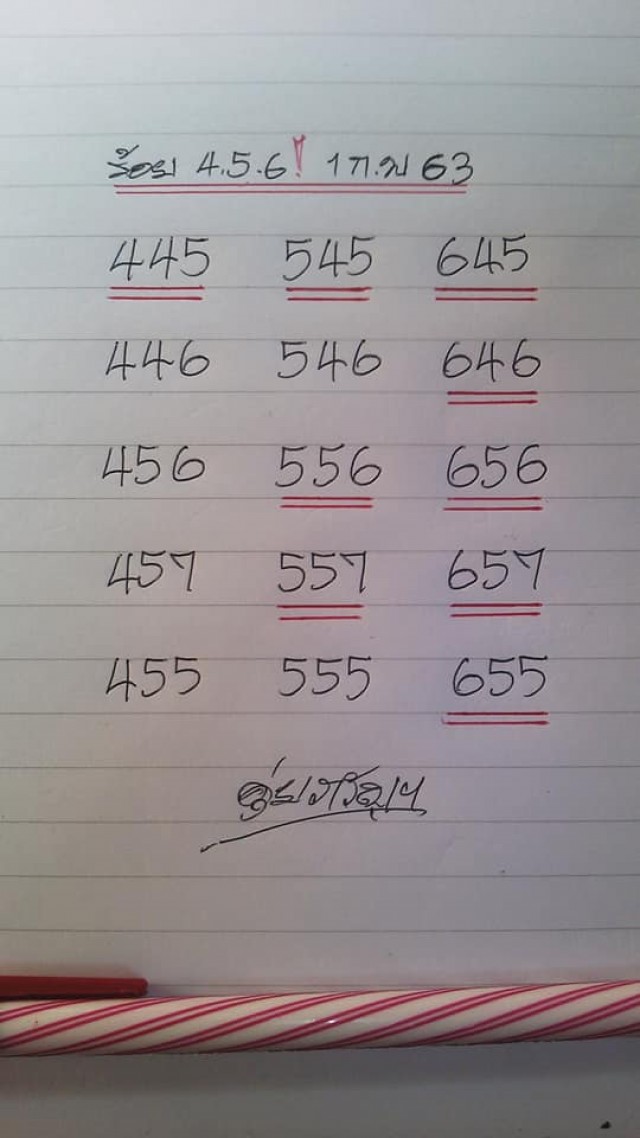 ร้อย 4.5.6! 1 ก.พ 63
445 545 645
446 546 646
456 556 656
457 557 657
455 555 655